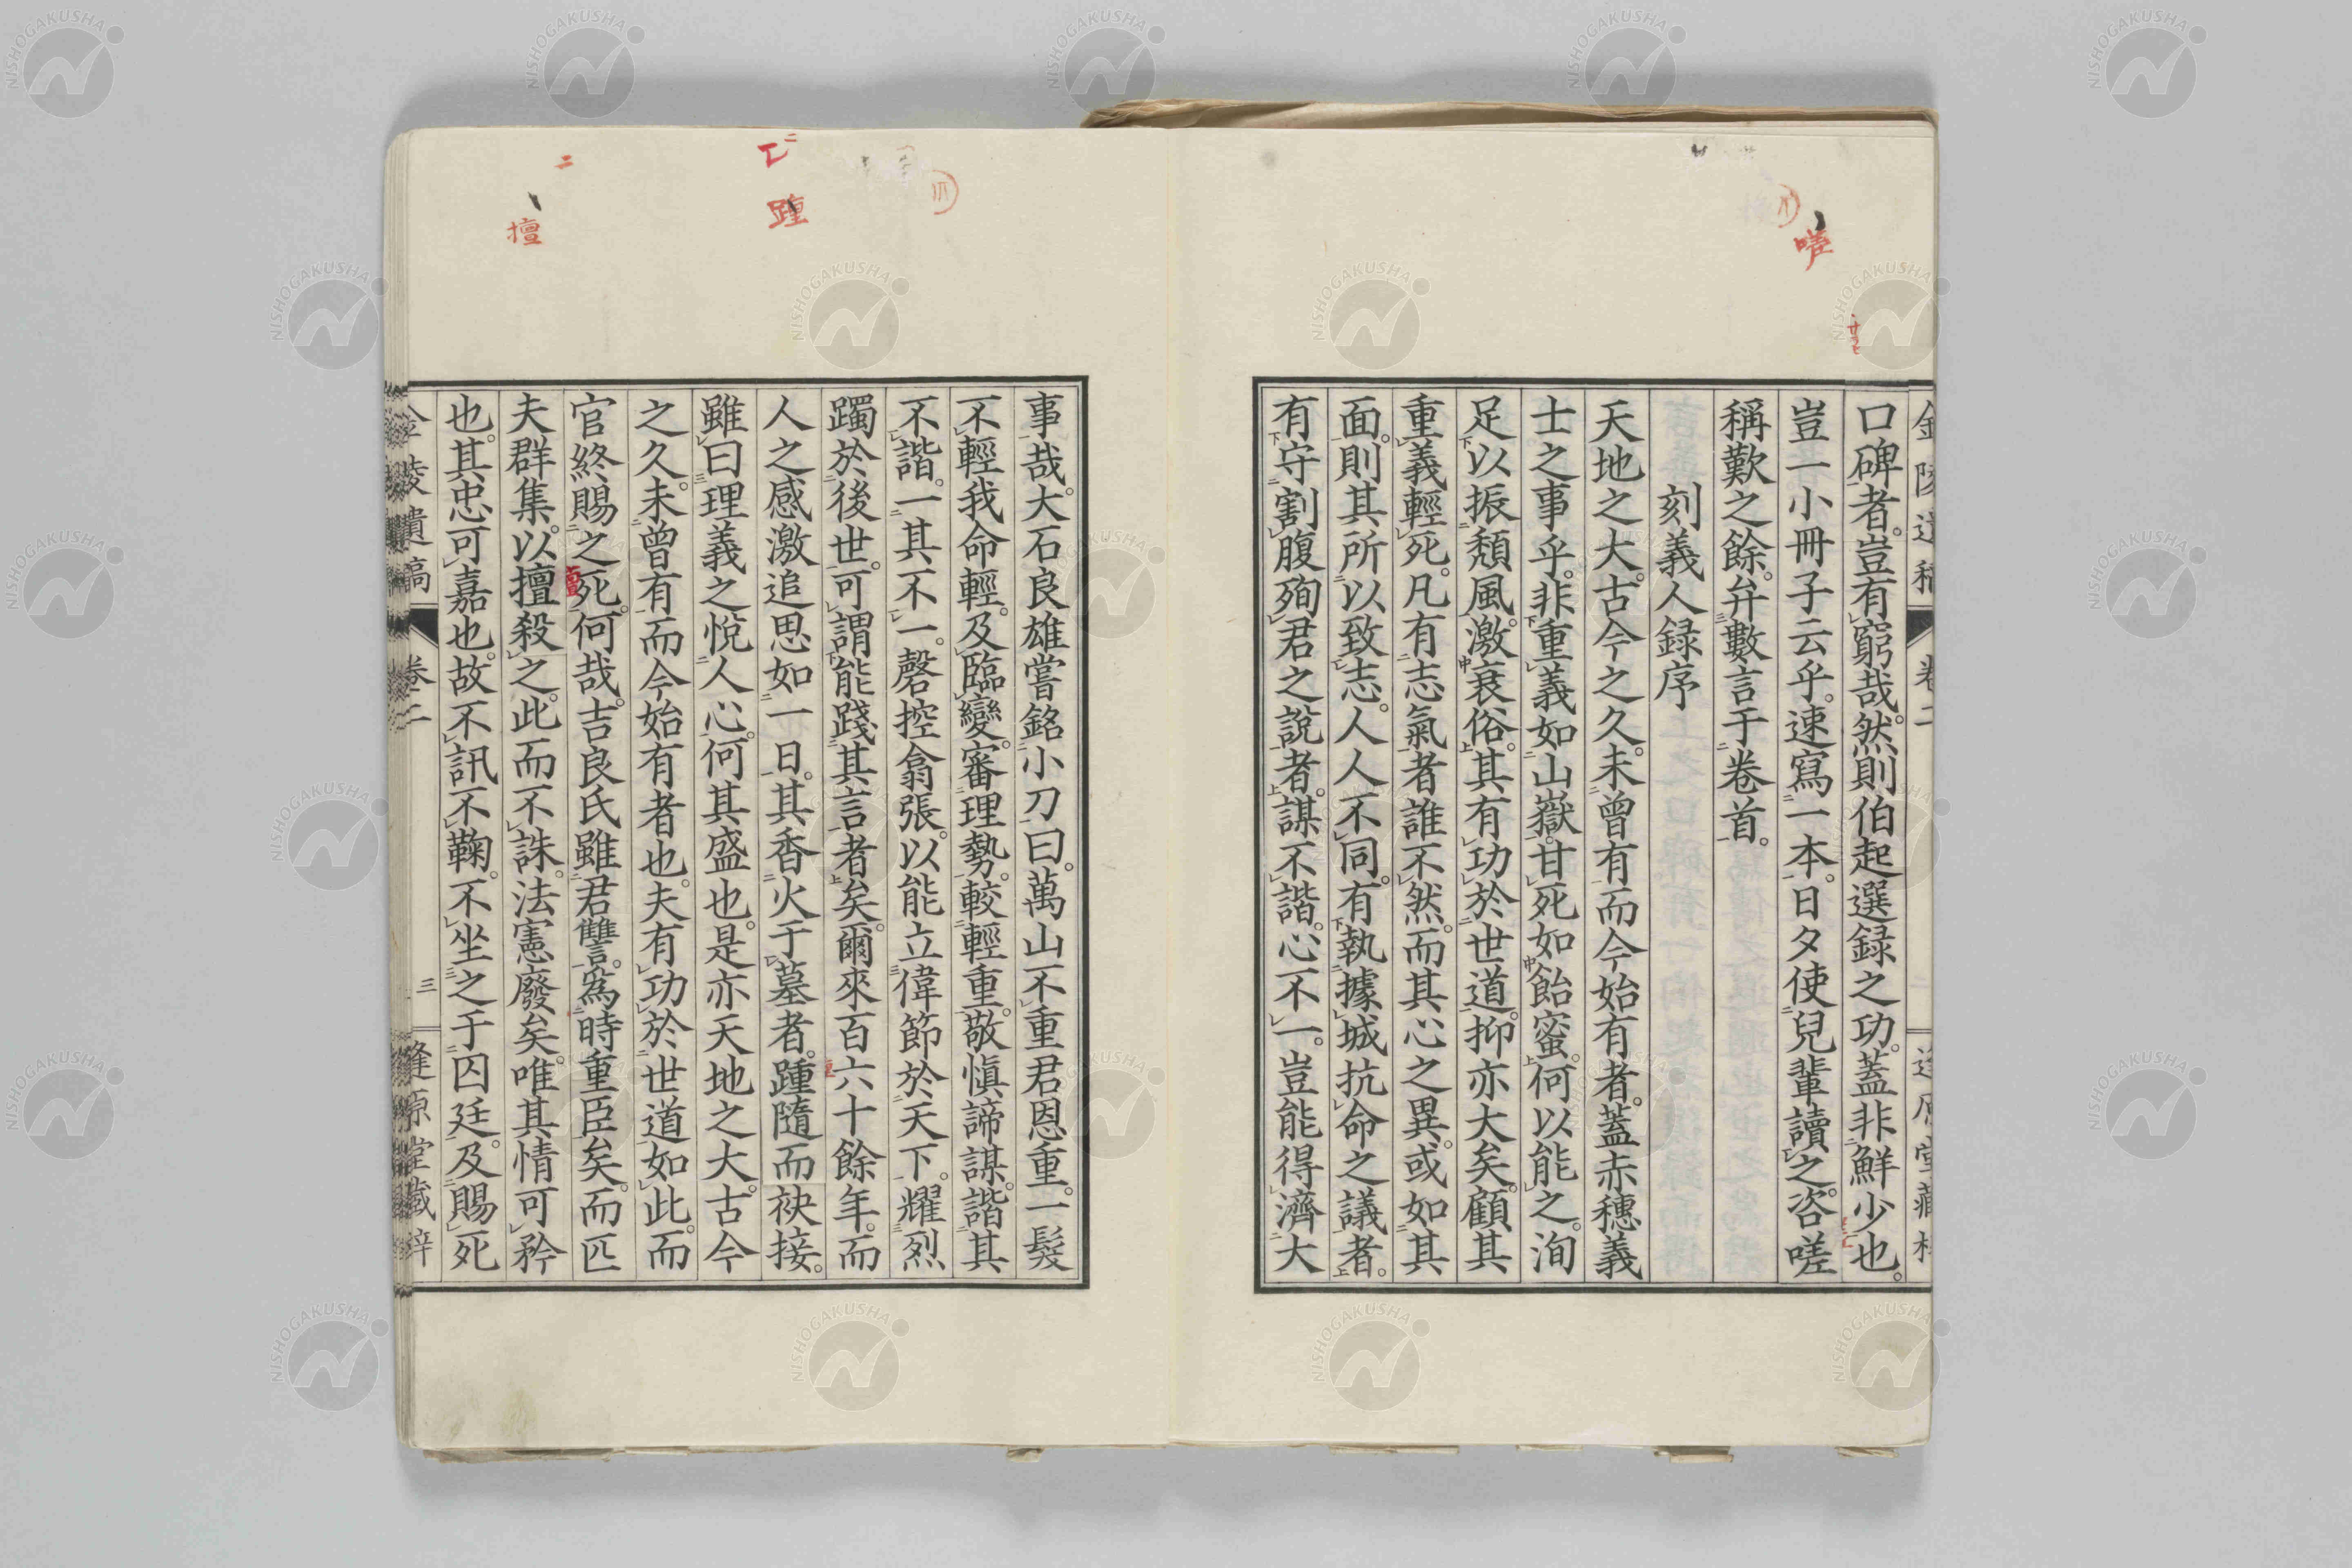 口碑者。豈有窮哉。然則伯起選録之功。蓋非鮮少也。
豈一小冊子云乎。速寫一本。日夕使兒輩讀之。咨嗟
稱歎之餘。弁數言于卷首。
刻義人録序
天地之大。古今之久。未曾有而今始有者。蓋赤穗義
士之事乎。非重義如山嶽。甘死如飴蜜。何以能之。洵
足以振頹風。激衰俗。其有功於世道。抑亦大矣。顧其
重義輕死。凡有志氣者誰不然。而其心之異。或如其
面。則其所以致志。人人不同。有執據城抗命之議者。
有守割腹殉君之說者。謀不諧。心不一。豈能得濟大
事哉。大石良雄嘗銘小刀曰。萬山不重君恩重。一髮
不輕我命輕。及臨變。審理勢。較輕重。敬愼諦謀。諧其
不諧。一其不一。磬控翕張。以能立偉節於天下。耀烈
躅於後世。可謂能踐其言者矣。爾來百六十餘年。而
人之感激追思如一日。其香火于墓者。踵隨而袂接。
雖曰理義之悅人心。何其盛也。是亦天地之大。古今
之久。未曾有而今始有者也。夫有功於世道如此。而
官終賜之死。何哉。吉良氏雖君讐。爲時重臣矣。而匹
夫群集。以擅殺之。此而不誅。法憲廢矣。唯其情可矜
也。其忠可嘉也。故不訊不鞠。不坐之于囚廷。及賜死
金陵遺稿 卷二
三
逢原堂藏梓
嗟
踵
擅